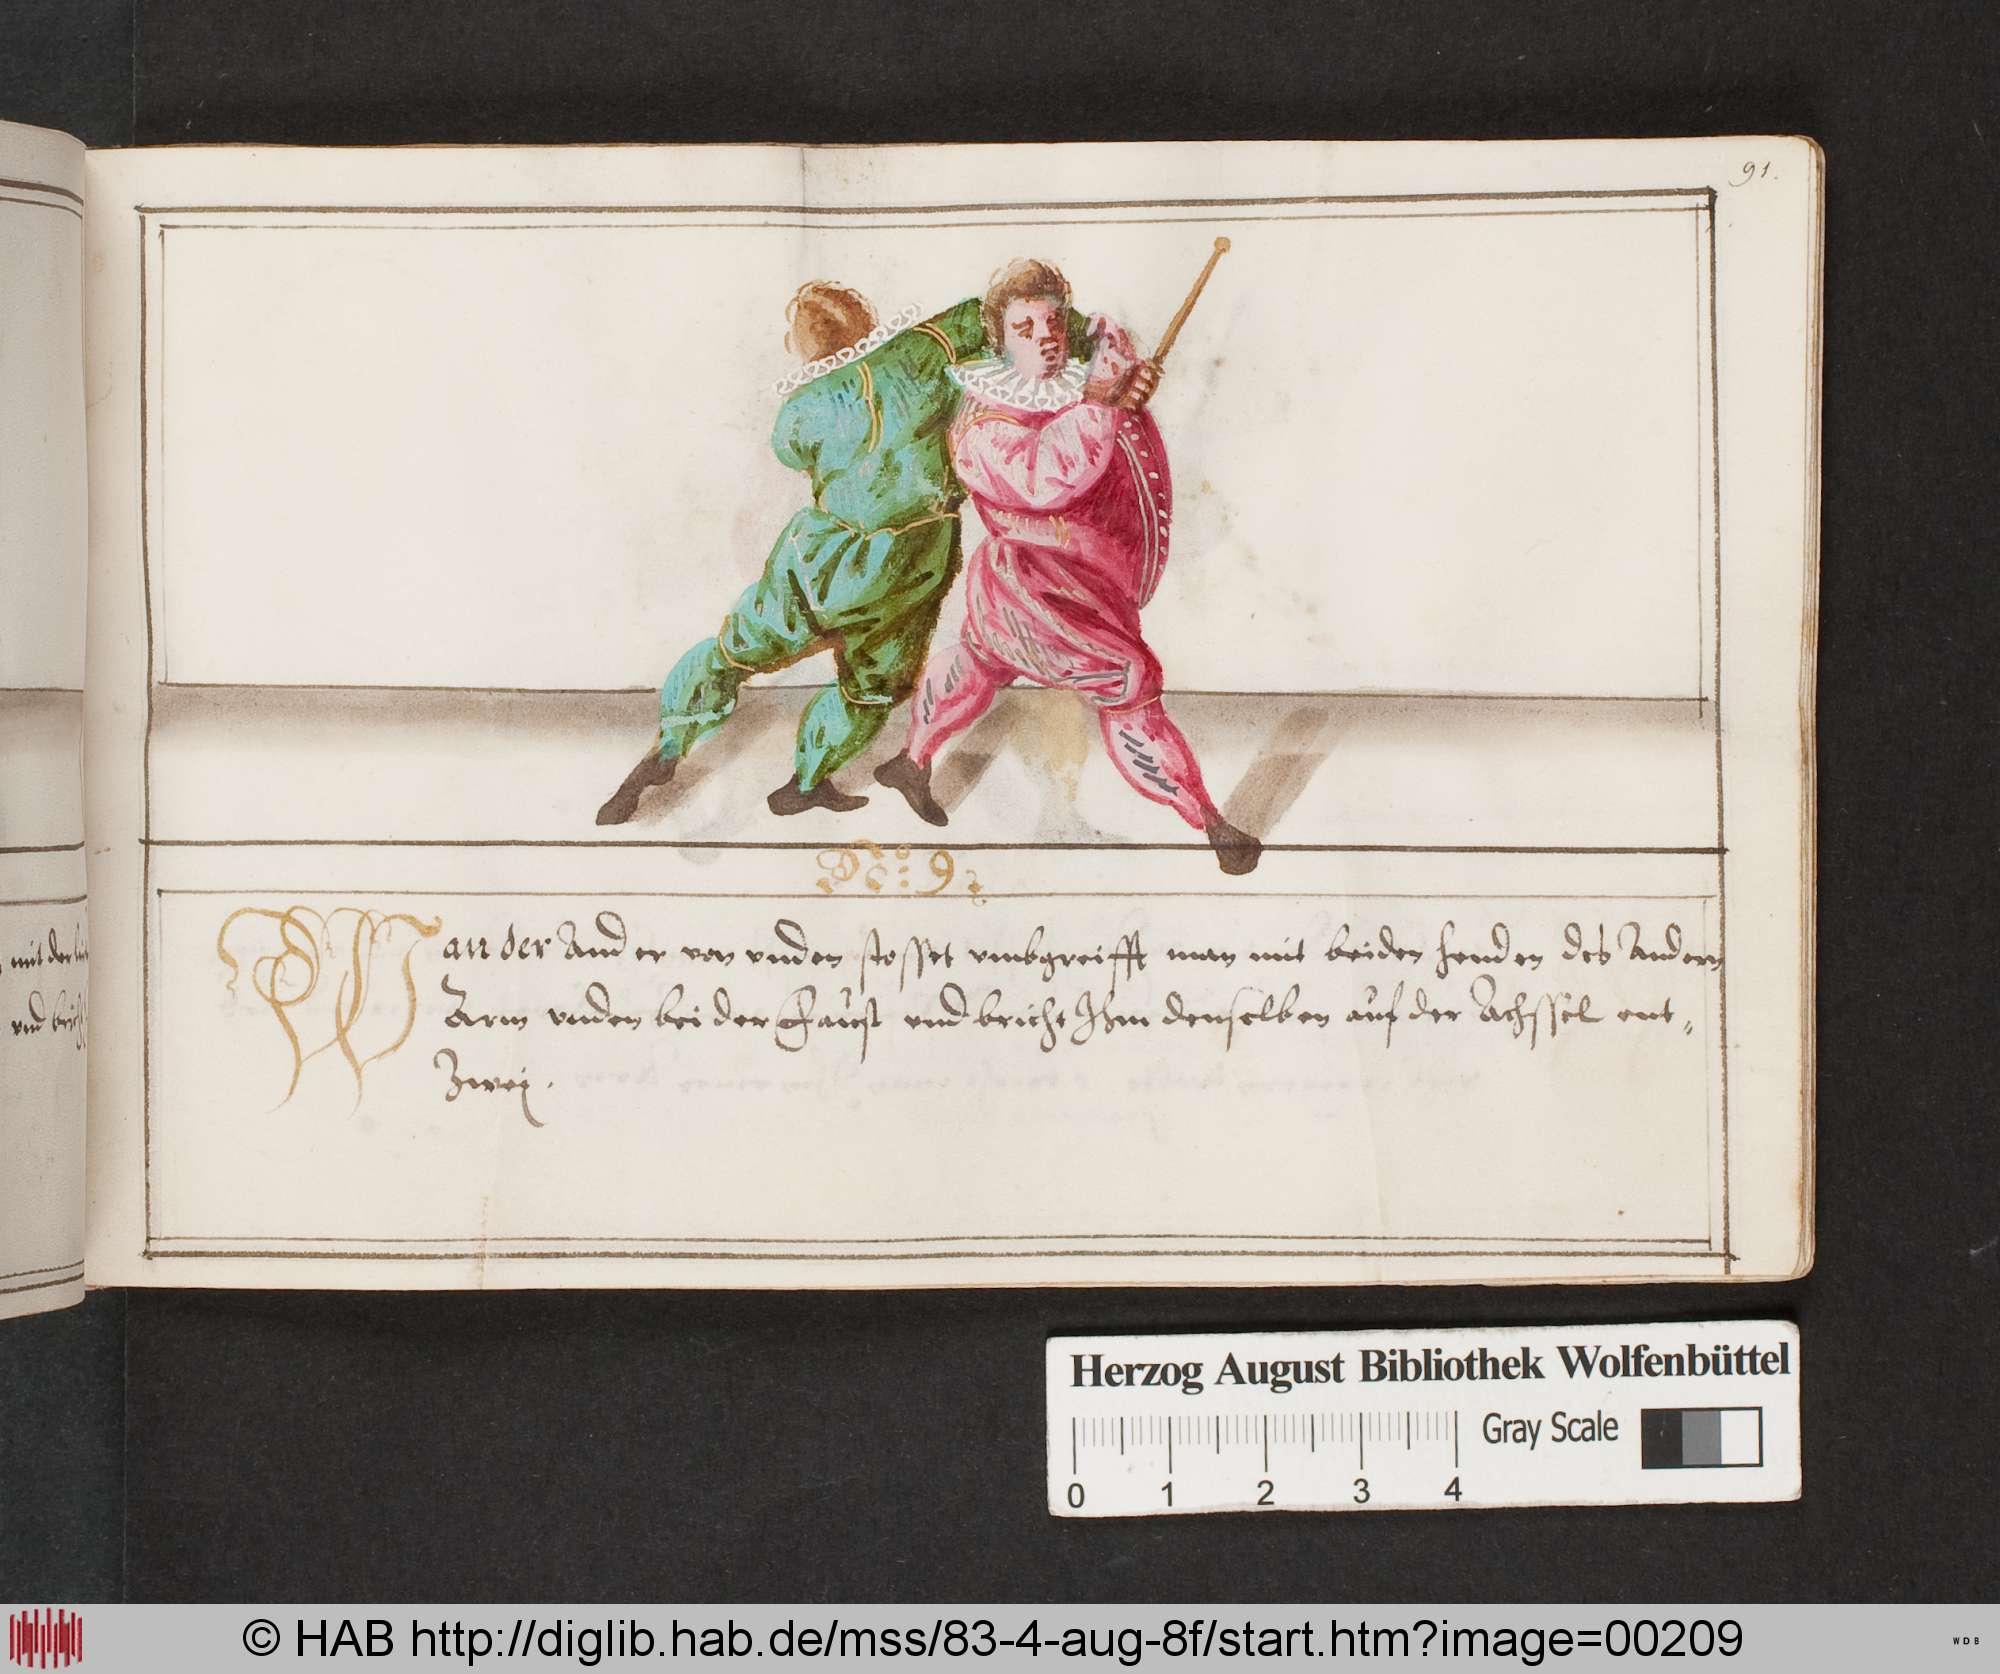 91.
mit der
No: 91
Wan der Ander von vnden stosset vmbgreifft man mit beiden henden des Andern
Arm vnden bei der Faust vnd bricht Ihm denselben auf der Achssel ent-
Zwei.
vnd
Herzog August Bibliothek Wolfenbüttel
Gray Scale
0 1 2 3 4
© HAB http://diglib.hab.de/mss/83-4-aug-8f/start.htm?image=00209
WDB